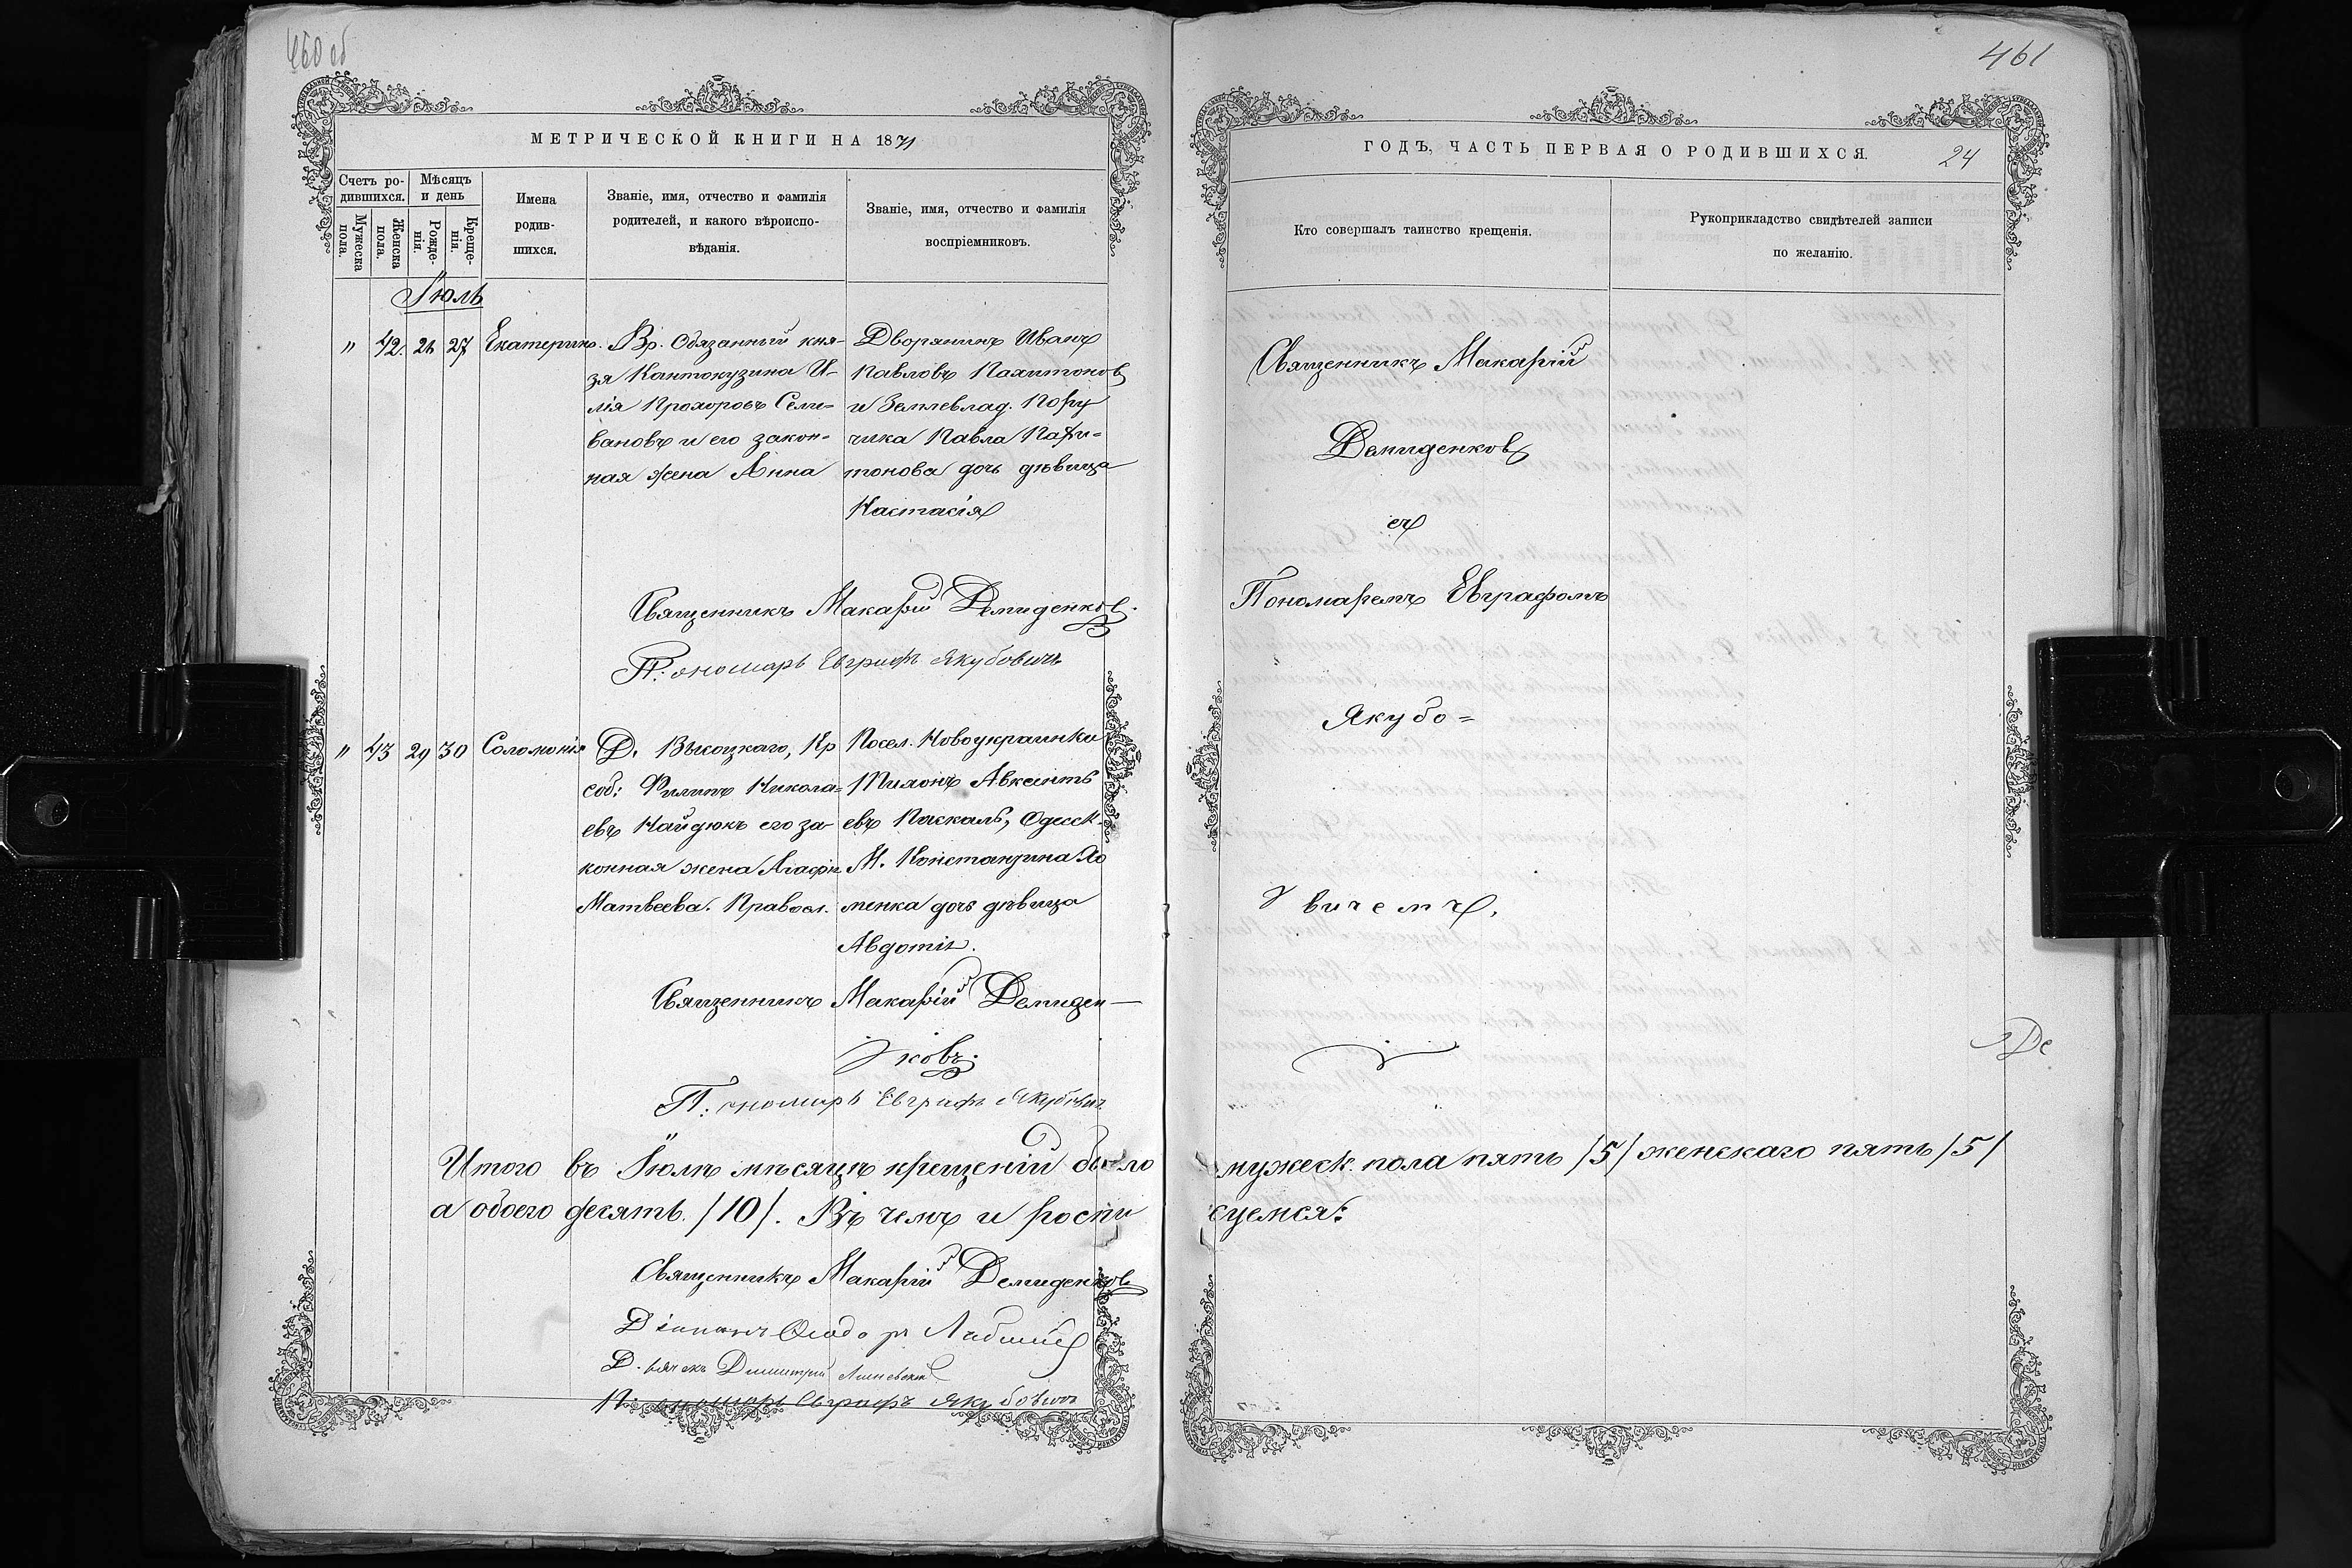 460 об
461
МЕТРИЧЕСКОЙ КНИГИ НА 1871
Счетъ ро-
дившихся.
Мѣсяцъ
и день
Мужеска
пола.
Женска
пола.
Рожде-
нія.
Креще-
нія.
Имена
родив-
шихся.
Званіе, имя, отчество и фамилія
родителей, и какого вѣроиспо-
вѣданія.
Званіе, имя, отчество и фамилія
воспріемниковъ.
Іюль
" 42. 26 27 Екатерина.
Вр. Обязанный кня-
зя Кантокузина И-
лія Прохоровъ Сели-
вановъ и его закон-
ная жена Анна
Дворянинъ Иванъ
Павловъ Пахитоновъ
и Землевлад. Пору
чика Павла Пахи-
тонова дочь дѣвица
Настасія
Священникъ Макарій Демиденковъ.
П: ономарь Евграфъ Якубовичъ
" 43 29 30 Соломонія
Д. Высоцкаго, Кр
соб: Филипъ Никола-
евъ Найдюкъ его за-
конная жена Агафія
Матвеева. Правосл.
Посел. Новоукраинки
Тихонъ Авксенть
евъ Паскаль, Одесск.
М. Константина Хо
менка дочь дѣвица
Авдотія.
Священникъ Макарій Демиден-
ковъ.
П: ономарь Евграфъ Якубовичъ
Итого въ Іюлѣ мѣсяцѣ крещеній было
а обоего десять. /10/. Въ чемъ и роспи
Священникъ Макарій Демиденковъ
Діаконъ
Д. ьячекъ Димитрій
П. ономарь Евграфъ Якубовичъ
ГОДЪ, ЧАСТЬ ПЕРВАЯ О РОДИВШИХСЯ.
24
Кто совершалъ таинство крещенія.
Рукоприкладство свидѣтелей записи
по желанію.
Священникъ Макарій
Демиденковъ
съ
Пономаремъ Евграфомъ
Якубо=
вичемъ.
Де
мужеск. пола пять /5/ женскаго пять /5/
суемся: